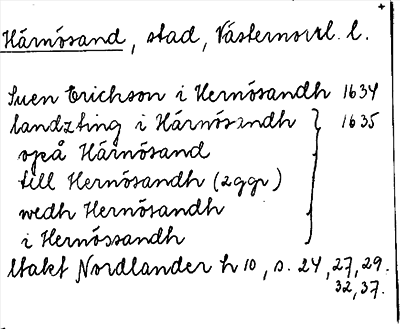 Härnösand, stad, Västernorrl. l.
Suen Erichson i Hernösandh 1634
landzting i Härnösandh } 1635
opå Härnösand
till Hernösandh (2ggr)
wedh Hernösandh
i Hernössandh
Utakt Nordlander h 10, s. 24, 27, 29.
32, 37.